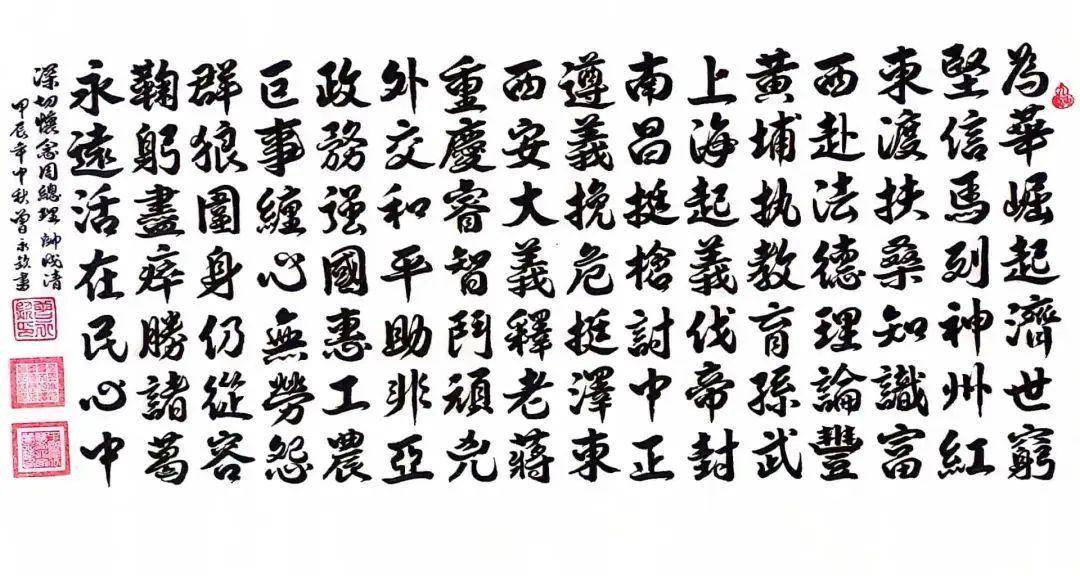 為華崛起濟世窮
堅信馬列神州紅
東渡扶桑知識富
西赴法德理論豐
黃埔執教育孫武
上海起義伐帝封
南昌挺槍討中正
遵義挽危挺澤東
西安大義釋老蔣
重慶睿智鬥頑兇
外交和平助非亞
政務强國惠工農
巨事纏心無勞怨
群狼圍身仍從容
鞠躬盡瘁勝諸葛
永遠活在民心中
深切懷念周總理 帥清
甲辰年中秋曾永書